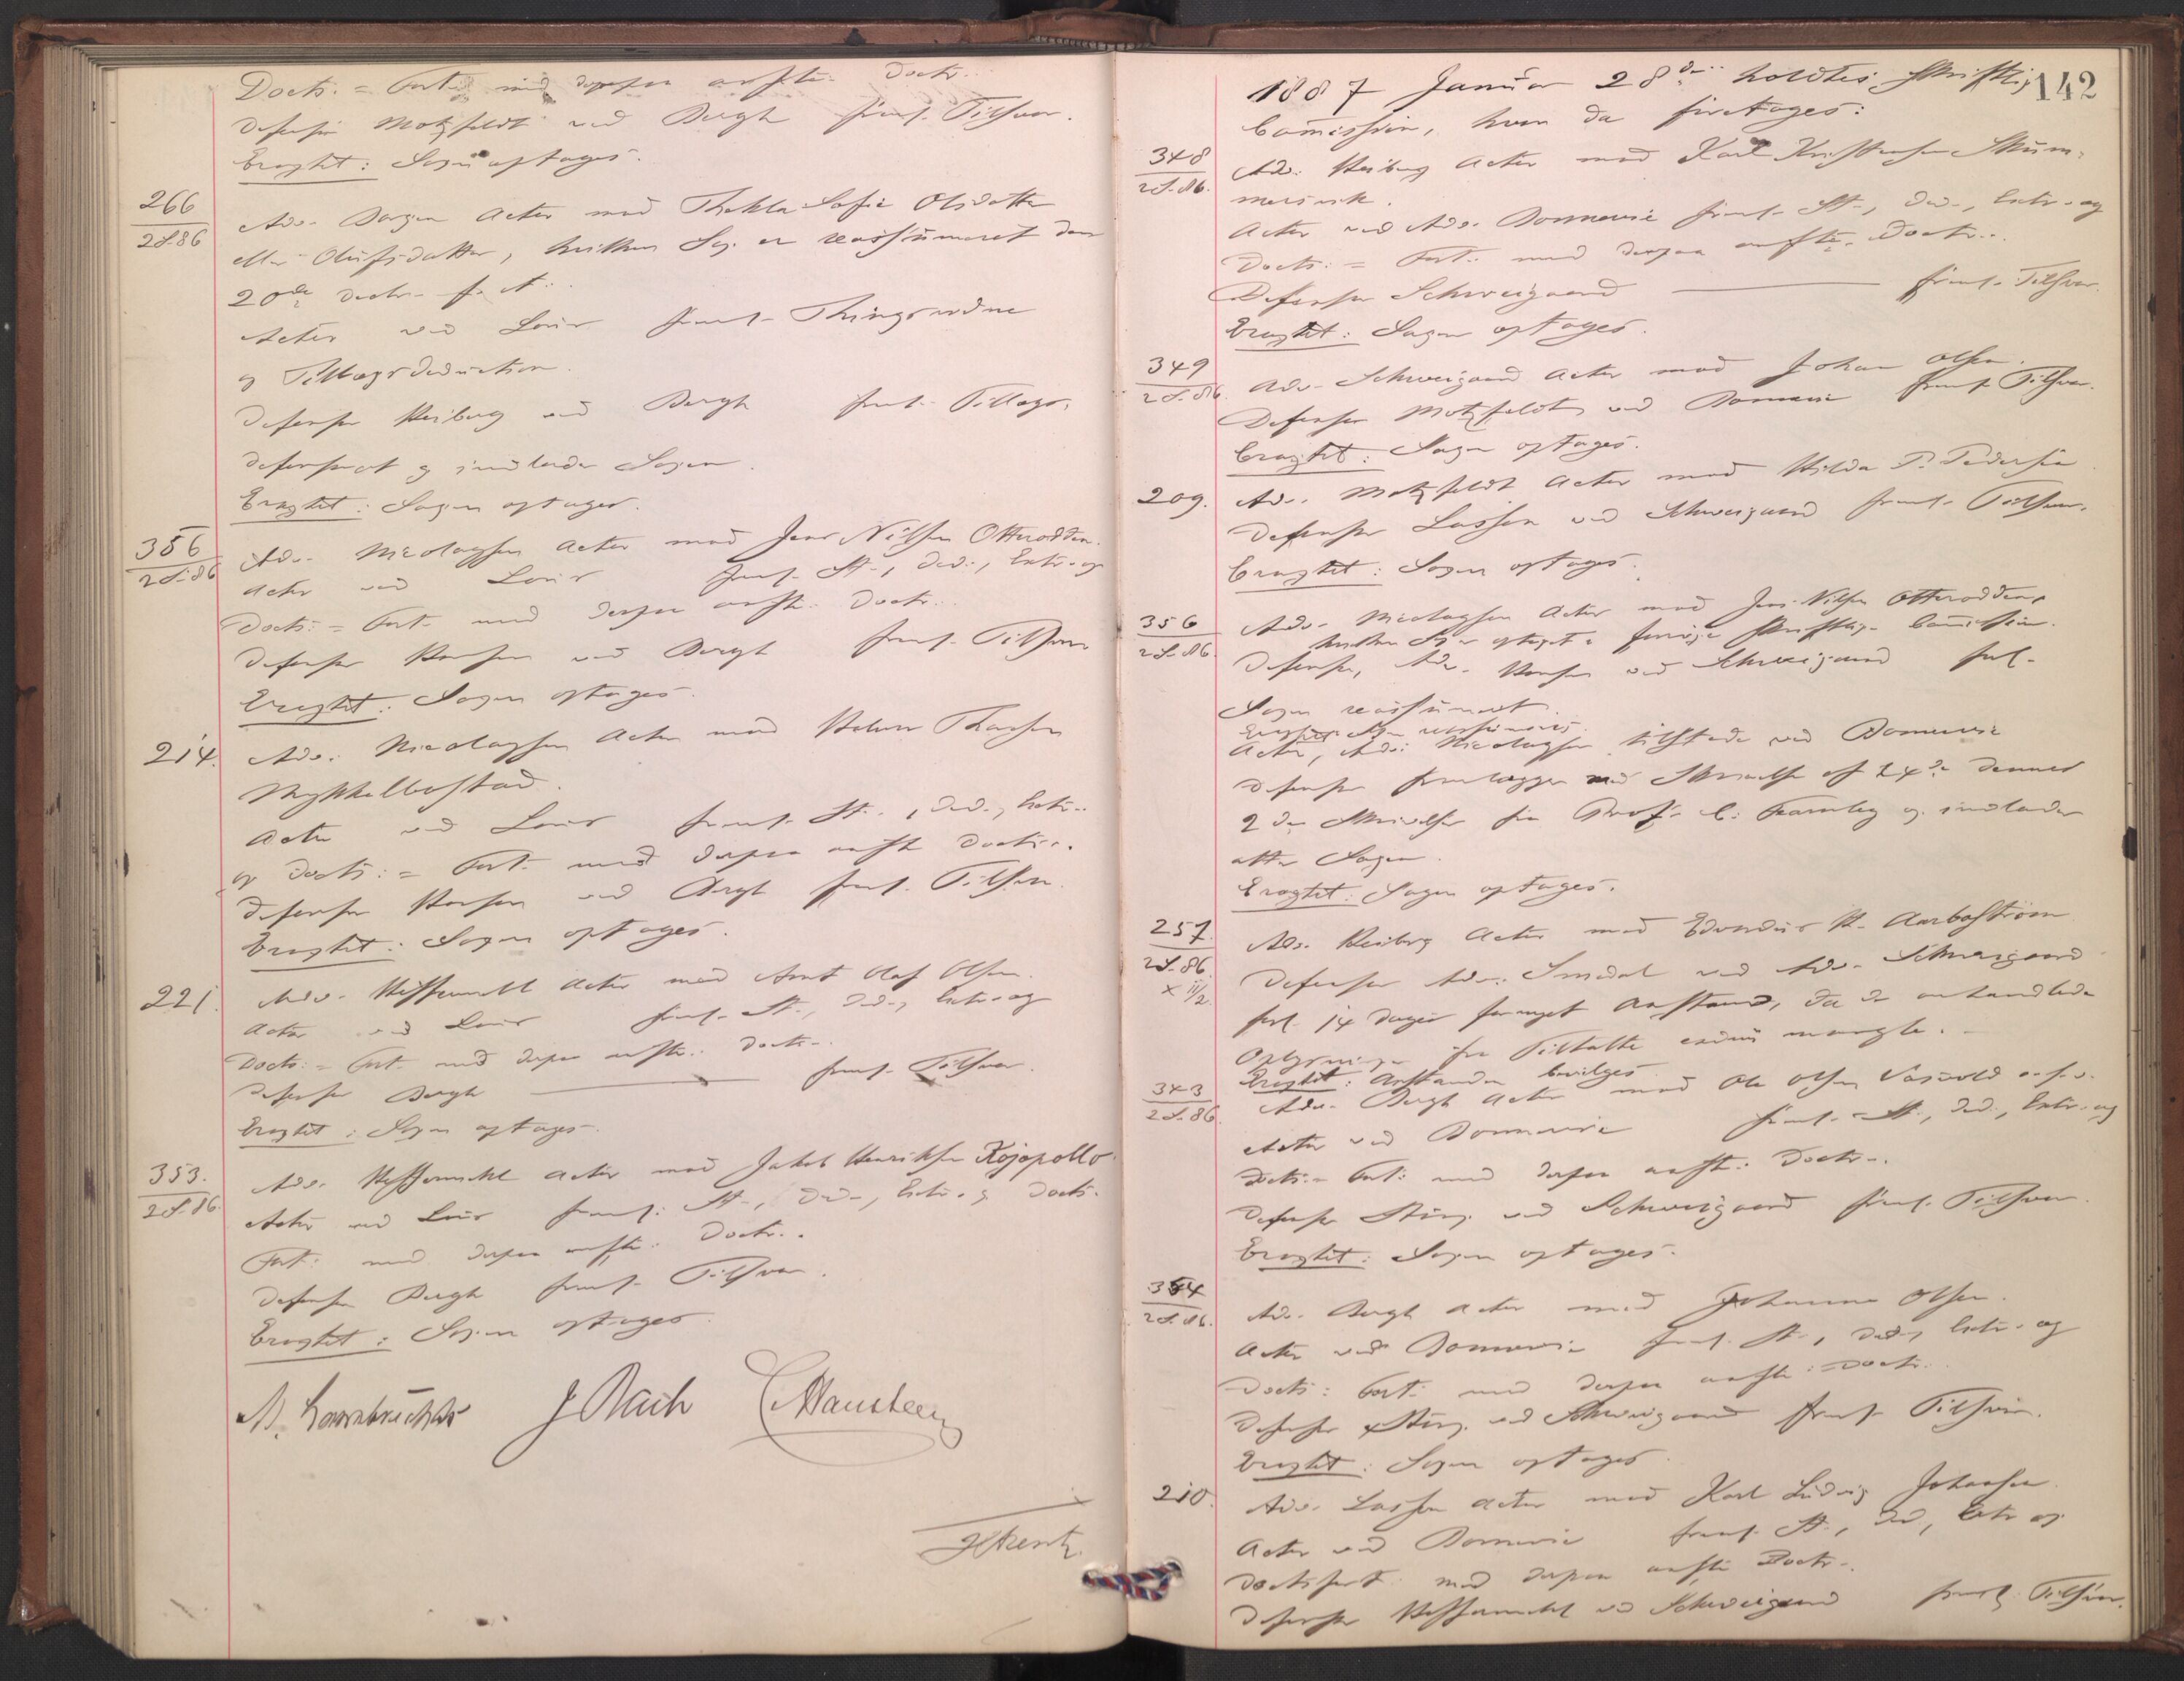 Docts. = Fort. med derpaa anfte. Doctr.
Defensor Motzfeldt ved Bergh freml. Tilsvar.
Eragtet: Sagen optages.
266
2S.86
Adv. Dorgen Actor mod Thekla Sofie Olsdatter
eller Olufsdatter, hvilken Sag er reassumeret den
20de Decbr. f. A.
Actor ved Lous freml. Thingsvidne
og Tillægsdeduction.
Defensor Heiberg ved Bergh freml. Tillægs-
defensorat og indlader Sagen.
Eragtet: Sagen optages.
356
2S.86
Adv. Nicolaysen Actor mod Jens Nilsen Otterodden.
Actor ved Lous freml. St., Ded., Extr. og
Docts. = Fort. med derpaa anfte. Doctr.
Defensor Hansen ved Bergh freml. Tilsvar
Eragtet: Sagen optages.
214.
Adv. Nicolaysen Actor mod Halvor Thorsen
Mykkelbostad.
Actor ved Lous freml. St., Ded., Extr.
og Docts. = Fort. med derpaa anfte Doctr.
Defensor Hansen ved Bergh freml. Tilsvar.
Eragtet: Sagen optages.
221.
Adv. Heffermehl Actor mod Arnt Olaf Olsen.
Actor ved Lous freml. St., Ded., Extr. og
Docts. = Fort. med derpaa anfte. Doctr.
Defensor Bergh freml. Tilsvar.
Eragtet: Sagen optages.
353.
2S.86.
Adv. Heffermehl Actor mod Jakob Henriksen Kojopollo.
Actor ved Lous freml. St., Ded., Extr. og Docts.
Fort. med derpaa anfte. Doctr.
Defensor Bergh freml. Tilsvar.
Eragtet: Sagen optages.
J Bach C Hansteen
142
1887 Januar 28de holdtes skriftlig
Commission, hvor da foretoges:
348
2S.86.
Adv. Heiberg Actor mod Karl Kristensen Skum-
mersvik.
Actor ved Adv. Bonnevie freml. St., Ded., Extr. og
Docts. = Fort. med derpaa anfte. Doctr.
Defensor Schweigaard freml. Tilsvar.
Eragtet: Sagen optages.
349
2S.86.
Adv. Schweigaard Actor mod Johan Olsen.
Defensor Motzfeldt ved Bonnevie freml. Tilsvar.
Eragtet: Sagen optages.
209.
Adv. Motzfeldt Actor mod Hilda P. Pedersen
Defensor Lassen ved Schweigaard freml. Tilsvar.
Eragtet: Sagen optages.
356
2S.86.
Adv. Nicolaysen Actor mod Jens Nilsen Otterodden,
hvilken Sag er optaget i forrige skriftlige Commission.
Defensor, Adv. Hansen ved Schweigaard forl.
Sagen reassumeret.
Eragtet: Sagen reassumeres.
Actor, Adv. Nicolaysen tilstede ved Bonnevie
Defensor fremlægger med Skrivelse af 24de dennes
2 de Skrivelser fra Prof. C. Fearnley og indlader
atter Sagen.
Eragtet: Sagen optages.
257.
2S.86.
x 11/2.
Adv. Heiberg Actor mod Edvardus H. Aarbostrøm
Defensor Adv. Smedal ved Adv. Schweigaard
forl. 14 Dages fornyet Anstand, da de
Oplysninger fra Tiltalte endnu mangle.
Eragtet: Anstanden bevilges.
343
2S.86.
Adv. Bergh Actor mod Ole Olsen
Actor ved Bonnevie freml. St., Ded., Extr. og
Docts. = Fort. med derpaa anfte. Doctr.
Defensor Stang ved Schweigaard freml. Tilsvar.
Eragtet: Sagen optages.
354
2S.86.
Adv. Bergh Actor mod Johanne Olsen.
Actor ved Bonnevie freml. St., Ded., Extr. og
Docts. Fort. med derpaa anfte. Doctr.
Defensor Stang ved Schweigaard freml. Tilsvar.
Eragtet: Sagen optages.
210.
Adv. Lassen Actor mod Karl Ludvig Johansen.
Actor ved Bonnevie freml. St., Ded., Extr. og
Doctsfort. med derpaa anfte Doctr.
Defensor Heffermehl ved Schweigaard freml. Tilsvar.